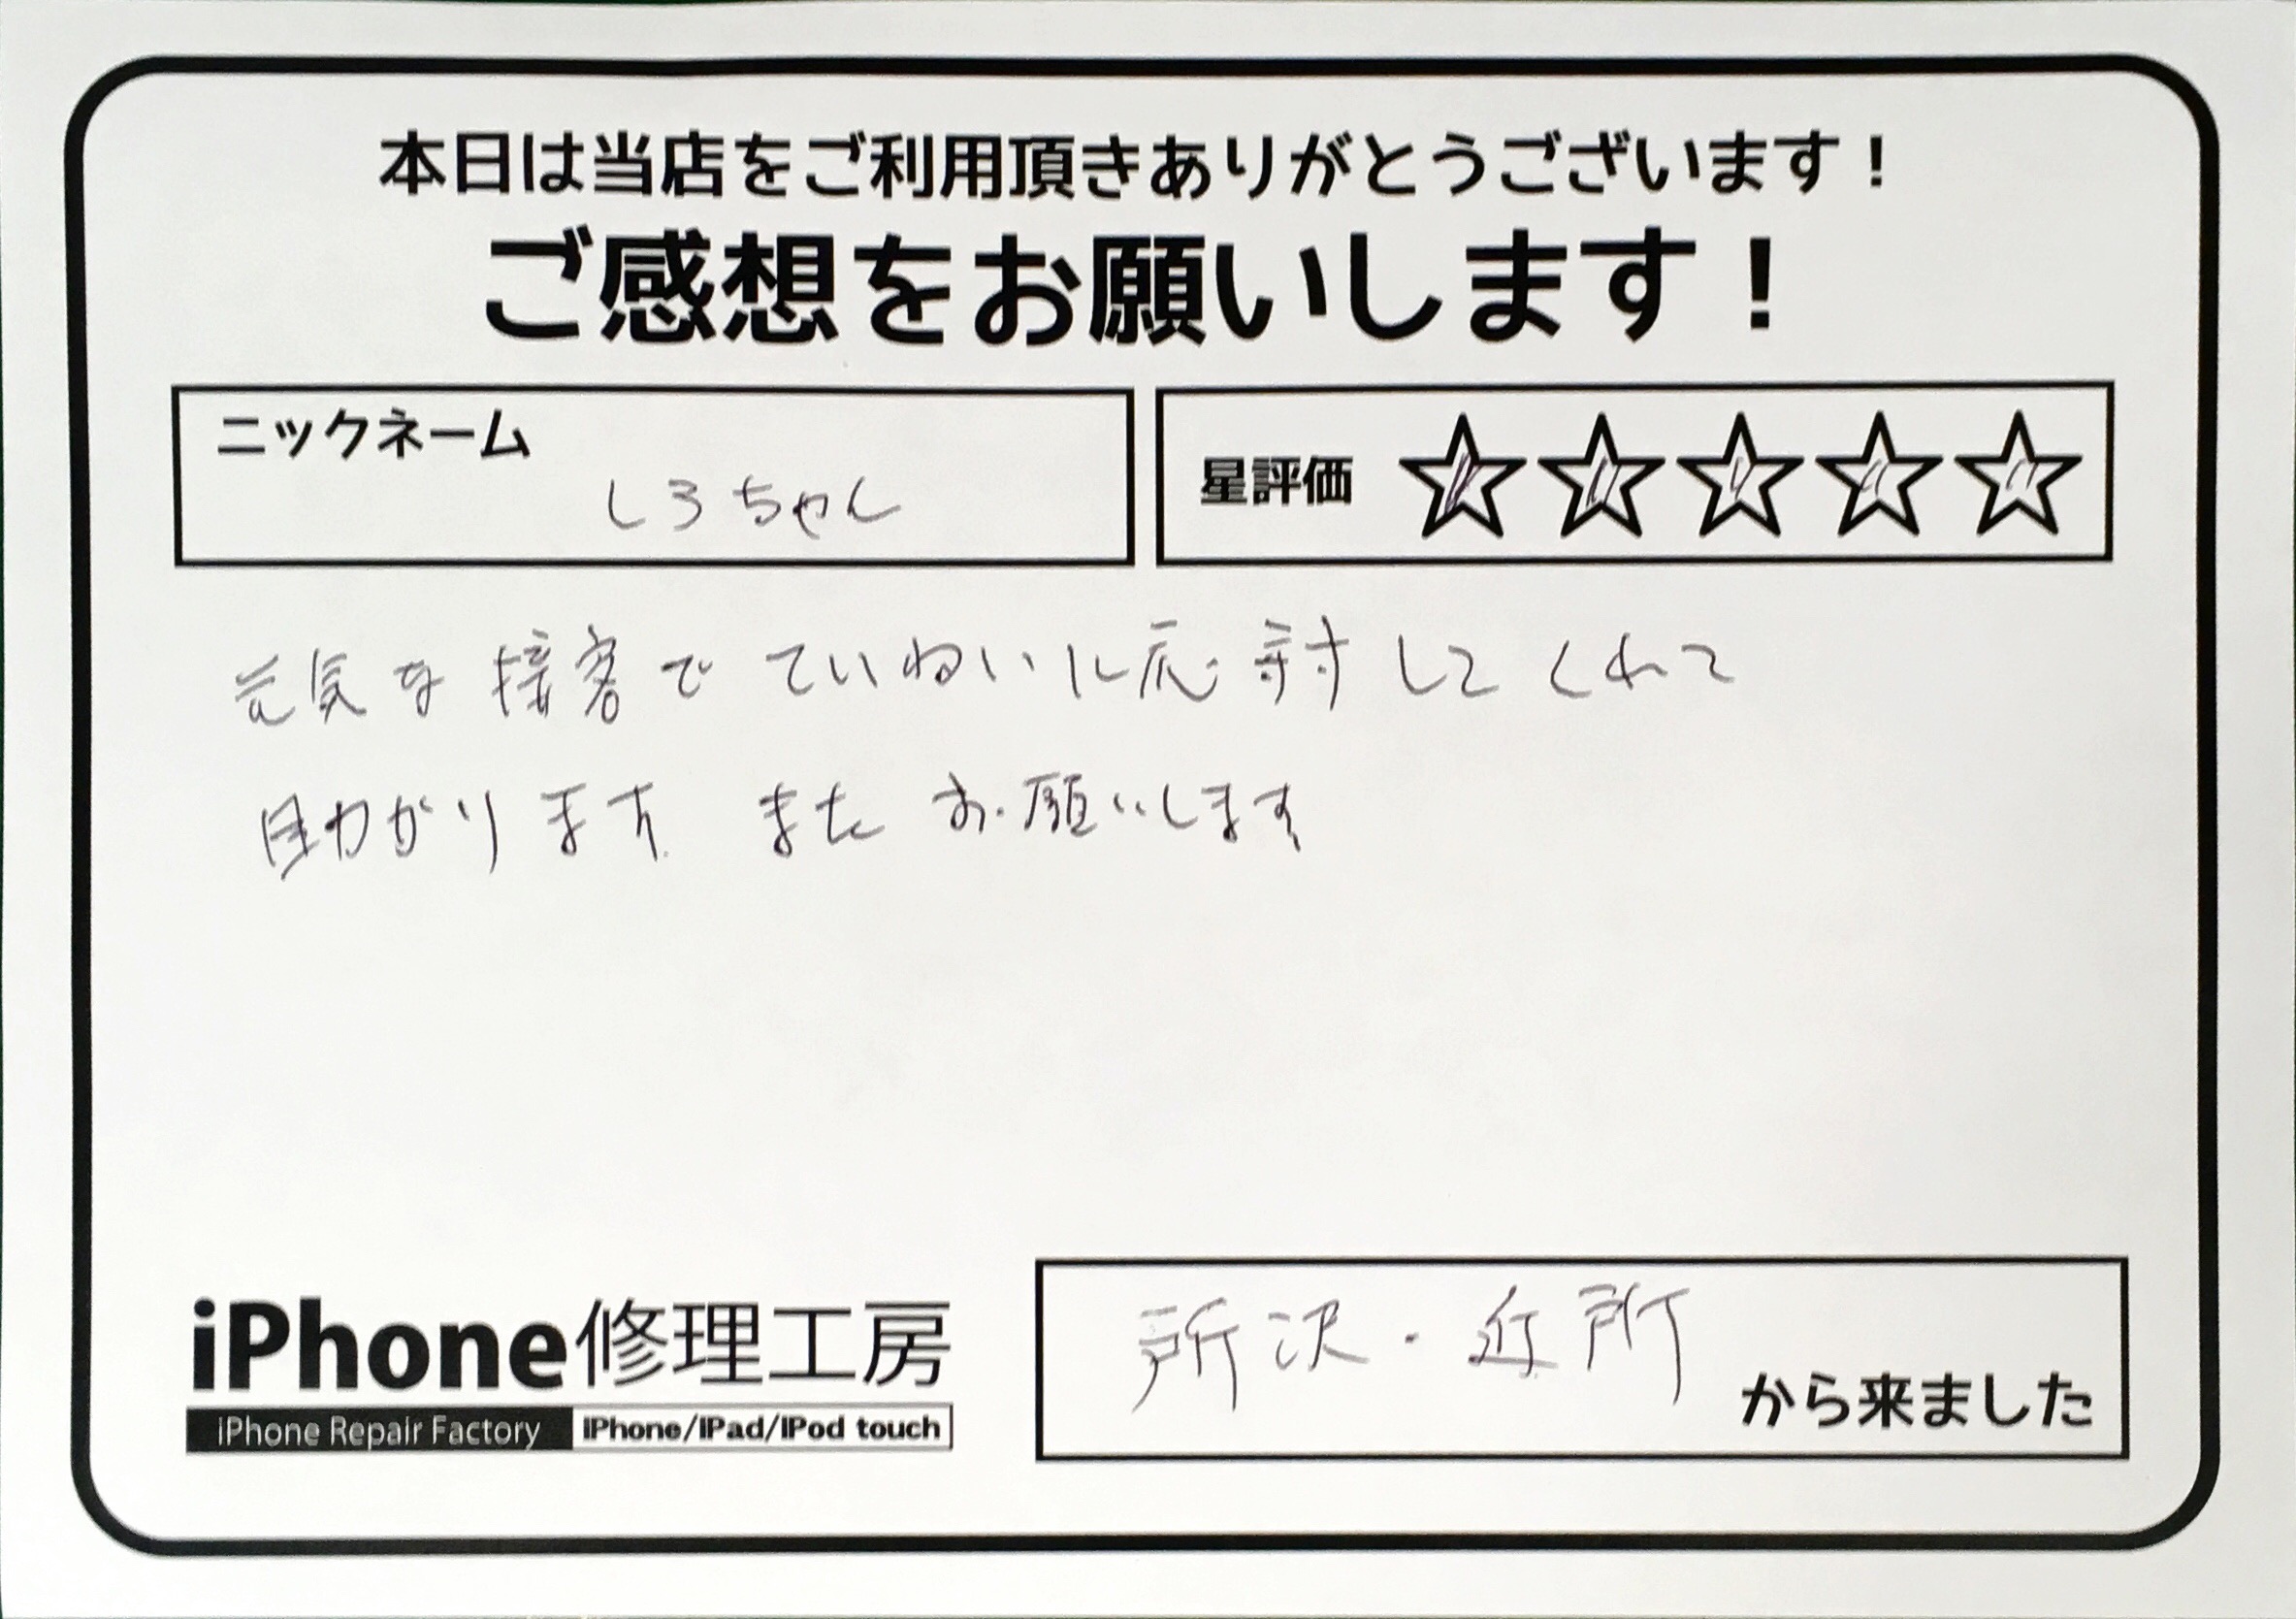 本日は当店をご利用頂きありがとうございます！
ご感想をお願いします！
ニックネーム
しろちゃん
星評価 ☆☆☆☆☆
元気な接客でていねいに応対してくれて
助かります またお願いします
iPhone修理工房
iPhone Repair Factory iPhone/iPad/iPod touch
所沢・近所
から来ました